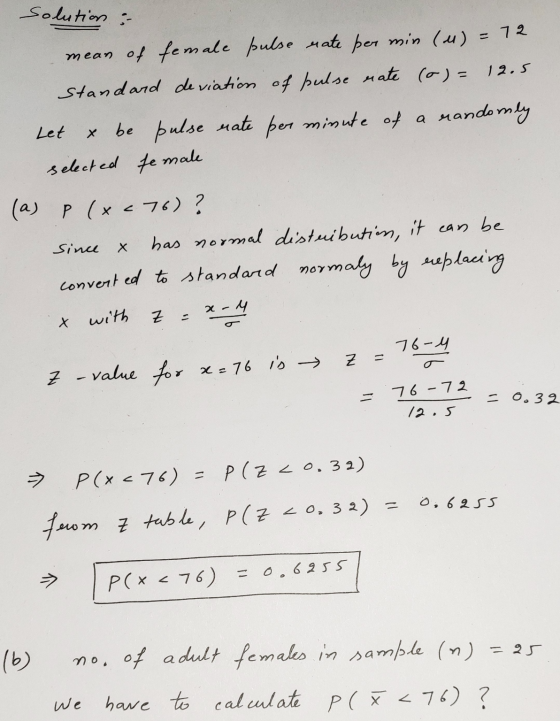 Solution :-
mean of female pulse rate per min (μ) = 72
Standard deviation of pulse rate (σ) = 12.5
Let x be pulse rate per minute of a randomly
selected female
(a) P (x < 76) ?
Since x has normal distribution, it can be
converted to standard normaly by replacing
x with Z = (x-μ)/σ
Z - value for x = 76 is → Z = (76-μ)/σ
= (76-72)/12.5 = 0.32
⇒ P(x < 76) = P(Z < 0.32)
from Z table, P(Z < 0.32) = 0.6255
⇒ P(x < 76) = 0.6255
(b) no. of adult females in sample (n) = 25
We have to calculate P(x̄ < 76) ?